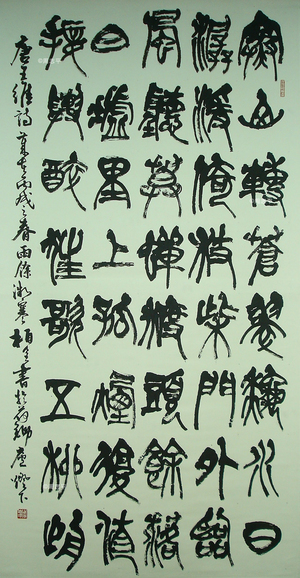 寒山轉蒼翠秋水日
潺湲倚杖柴門外臨
風聽暮蟬渡頭餘落
日墟里上孤煙復值
接輿醉狂歌五柳前
唐王維詩 丙戌之春雨餘 書於 鄉廬燈下